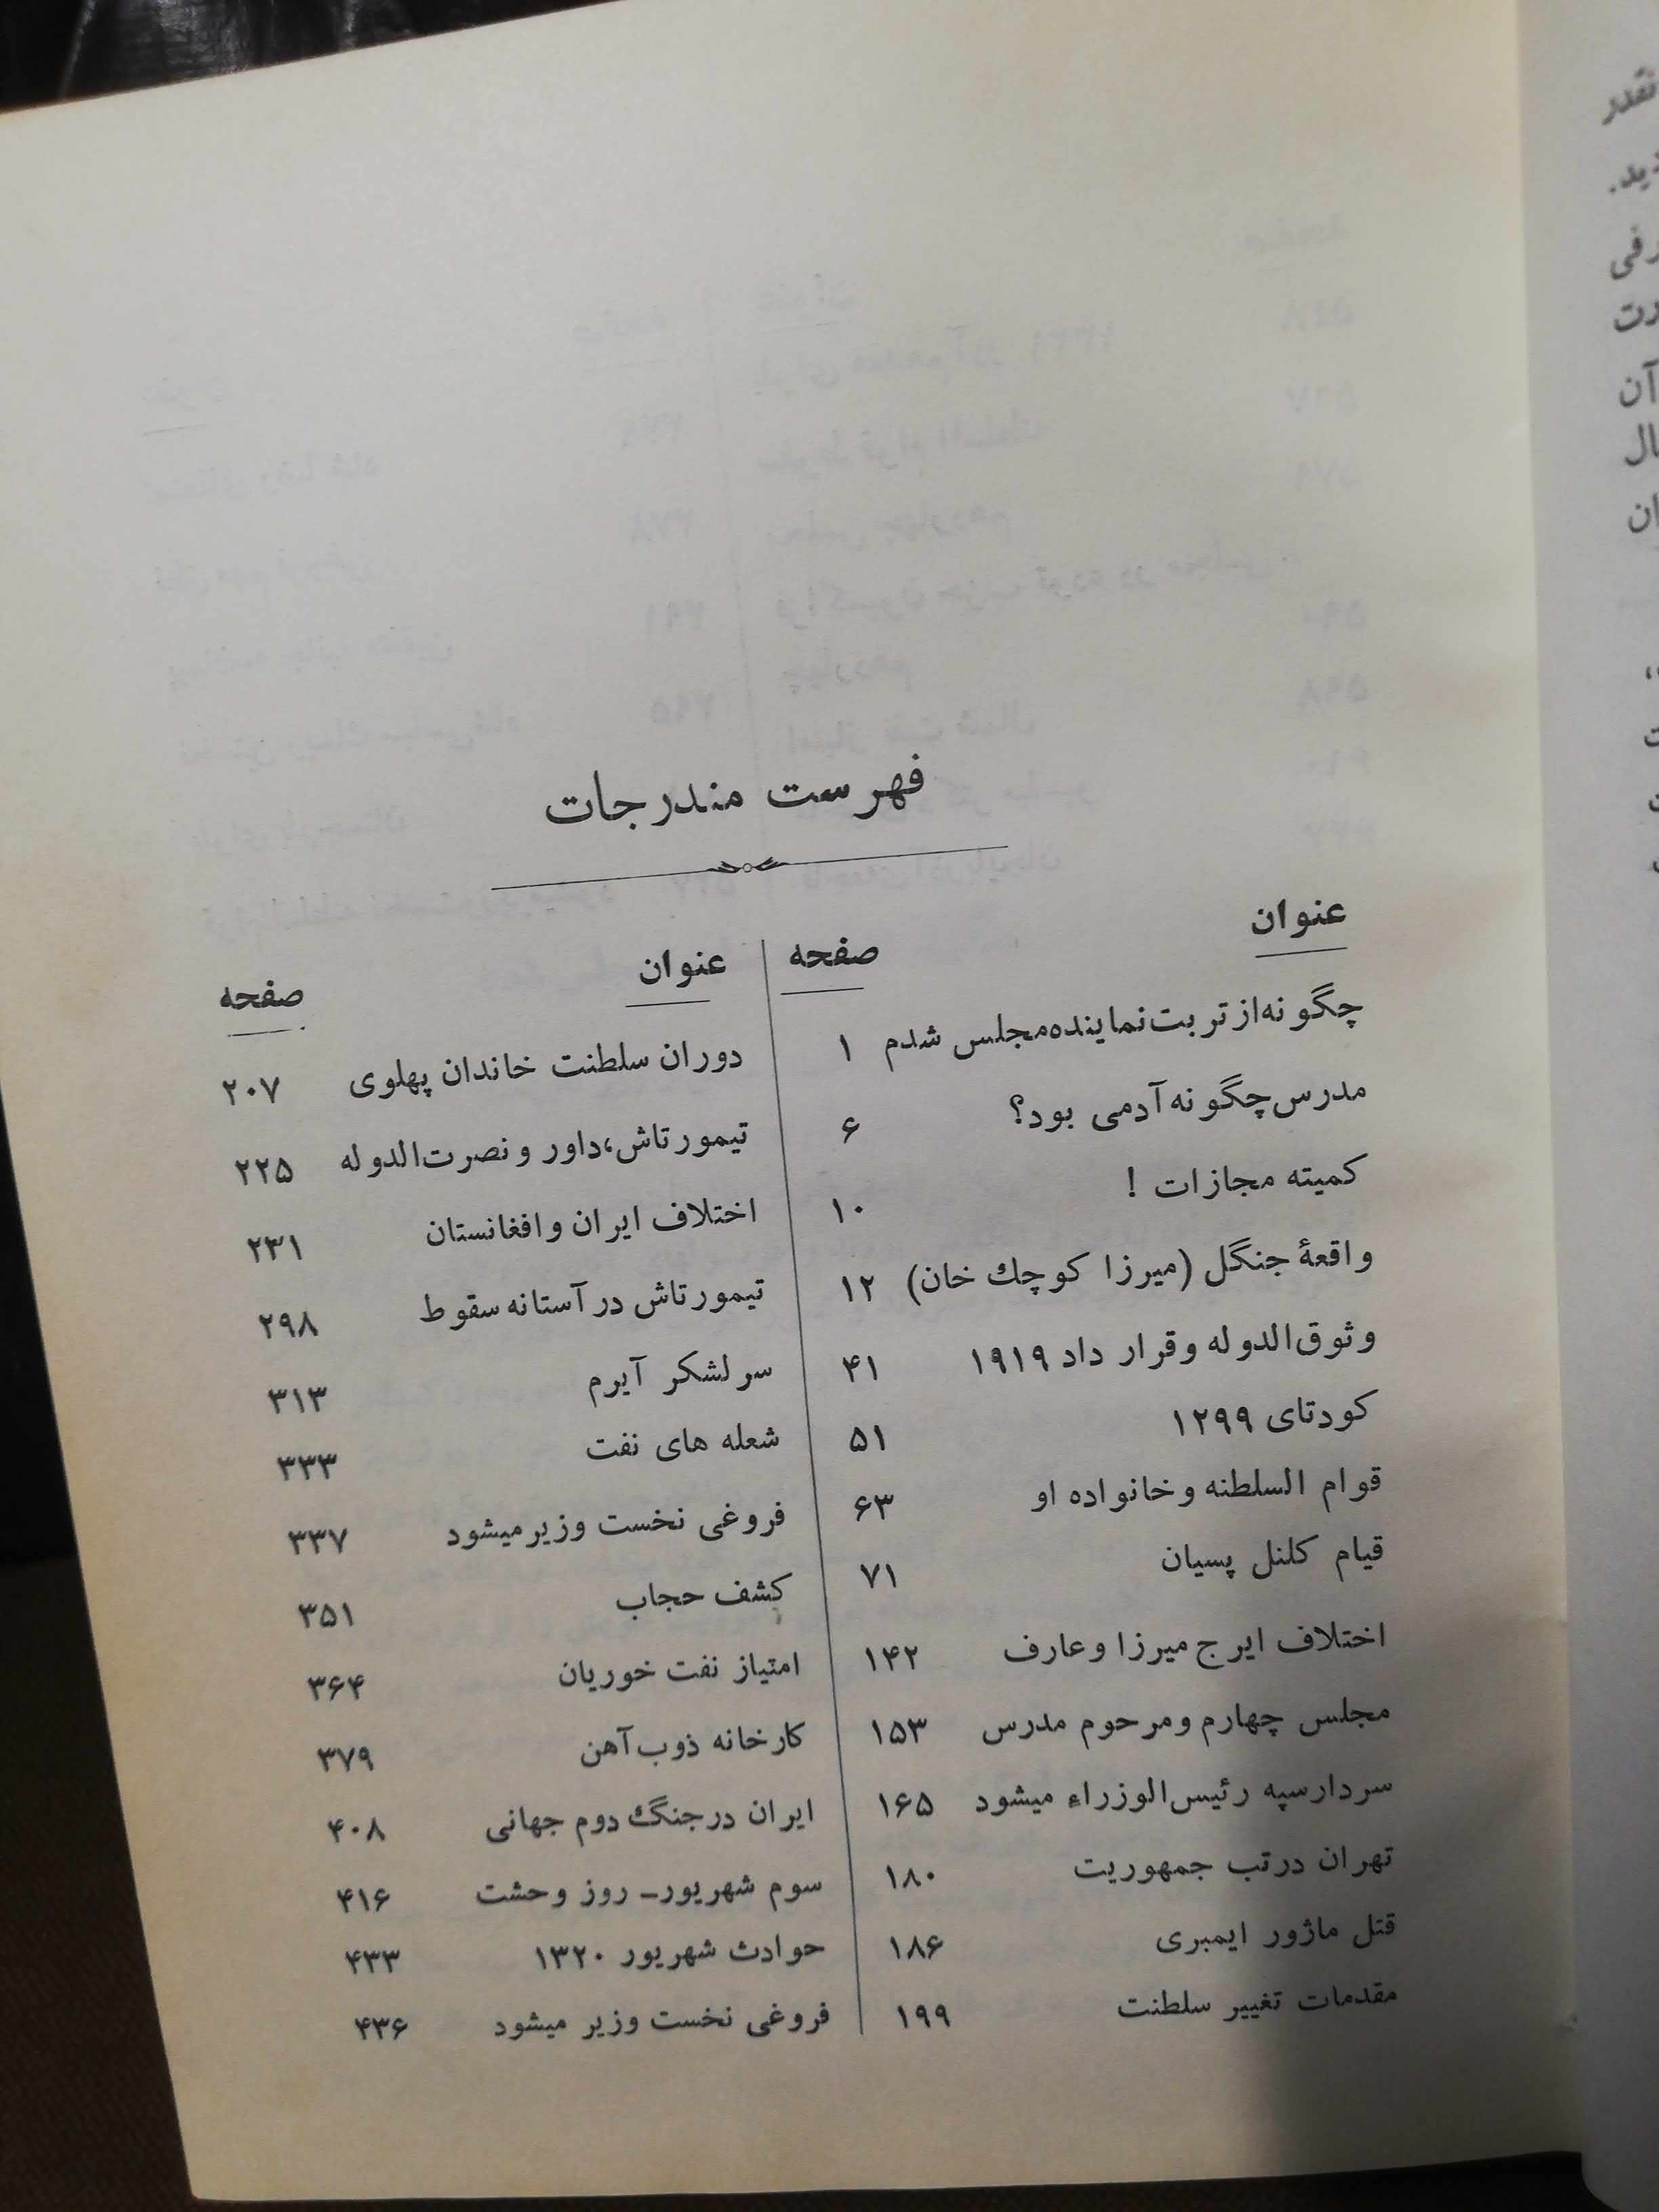 فهرست مندرجات
عنوان صفحه
چگونه از تربت نماینده مجلس شدم ۱
مدرس چگونه آدمی بود؟ ۶
کمیته مجازات ! ۱۰
واقعهٔ جنگل (میرزا کوچك خان) ۱۲
وثوق‌الدوله و قرار داد ۱۹۱۹ ۴۱
کودتای ۱۲۹۹ ۵۱
قوام السلطنه و خانواده او ۶۳
قیام کلنل پسیان ۷۱
اختلاف ایرج میرزا و عارف ۱۴۲
مجلس چهارم و مرحوم مدرس ۱۵۳
سردار سپه رئیس‌الوزراء میشود ۱۶۵
تهران در تب جمهوریت ۱۸۰
قتل ماژور ایمبری ۱۸۶
مقدمات تغییر سلطنت ۱۹۹
عنوان صفحه
دوران سلطنت خاندان پهلوی ۲۰۷
تیمورتاش، داور و نصرت‌الدوله ۲۲۵
اختلاف ایران و افغانستان ۲۳۱
تیمورتاش در آستانه سقوط ۲۹۸
سرلشکر آیرم ۳۱۳
شعله های نفت ۳۳۳
فروغی نخست وزیر میشود ۳۳۷
کشف حجاب ۳۵۱
امتیاز نفت خوریان ۳۶۴
کارخانه ذوب آهن ۳۷۹
ایران در جنگ دوم جهانی ۴۰۸
سوم شهریور- روز وحشت ۴۱۶
حوادث شهریور ۱۳۲۰ ۴۳۳
فروغی نخست وزیر میشود ۴۳۶